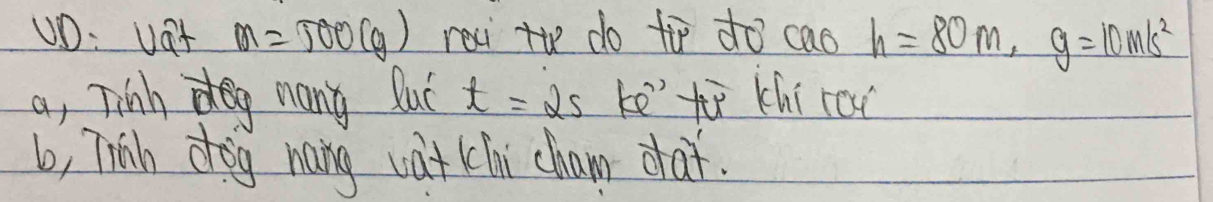 VD: Vật m = 500(g) rơi tự do từ độ cao h = 80m, g = 10m/s²
a, Tính độg năng lúc t = 2s kể từ khi rơi
b, Tính độg năng vật khi chạm đất.